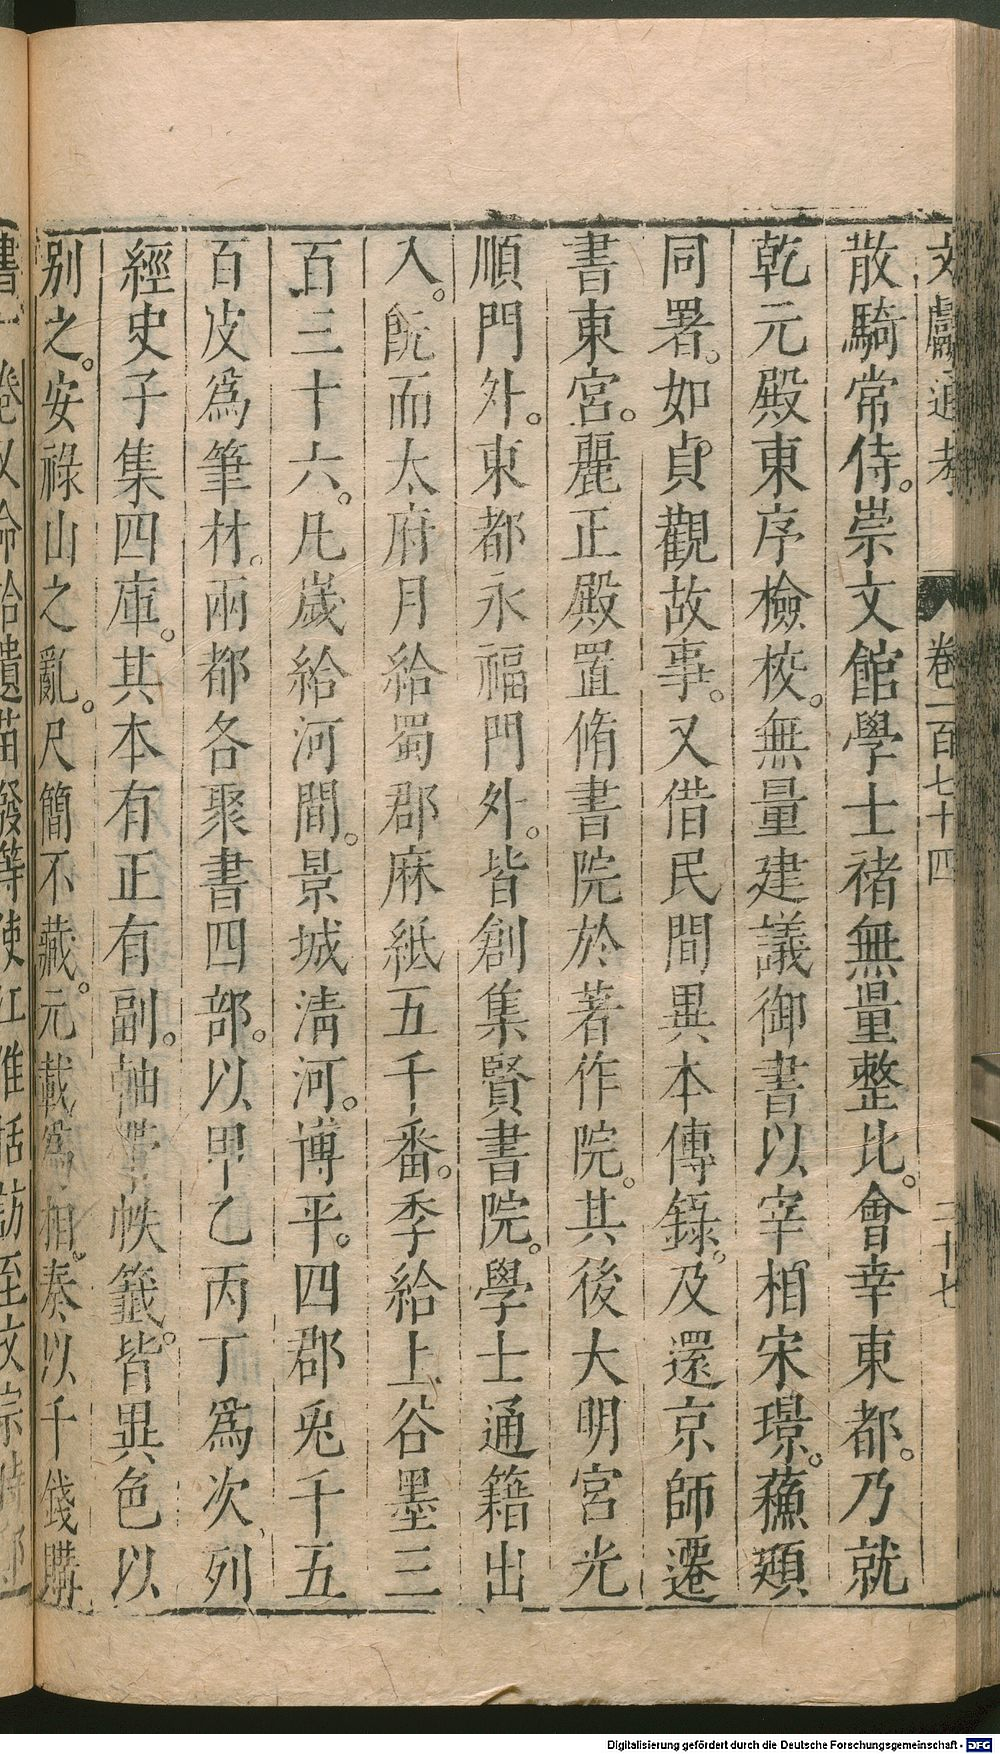 文獻通考 卷一百七十四 二十七
散騎常侍。崇文館學士禇無量整比。會幸東都。乃就
乾元殿東序檢校。無量建議御書以宰相宋璟。蘇頲
同署。如貞觀故事。又借民間異本傳錄。及還京師遷
書東宮。麗正殿置脩書院於著作院。其後大明宮光
順門外。東都永福門外。皆創集賢書院。學士通籍出
入。旣而太府月給蜀郡麻紙五千番。季給上谷墨三
百三十六。凡歲給河間。景城淸河。博平。四郡兎千五
百皮爲筆材。兩都各聚書四部。以甲乙丙丁爲次列
經史子集四庫。其本有正有副。軸帶帙籤。皆異色以
别之。安祿山之亂。尺簡不藏。元載爲相。奏以千錢購
書一卷又命拾遺苗發等使江淮括訪至文宗時鄭
Digitalisierung gefördert durch die Deutsche Forschungsgemeinschaft - DFG